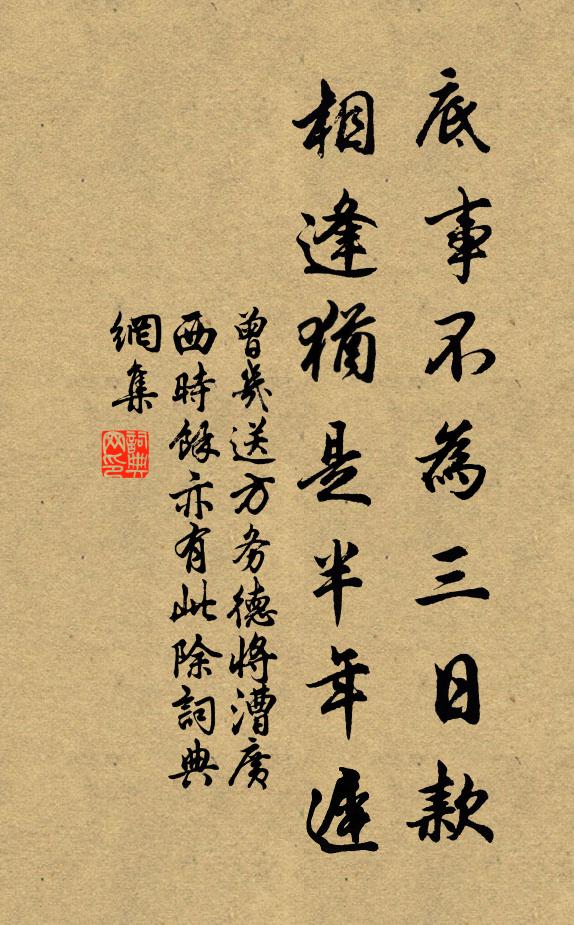 底事不為三日款
相逢猶是半年遲
曾幾送方务德將漕廣
西時餘亦有此除詞典
網集
詞典網印